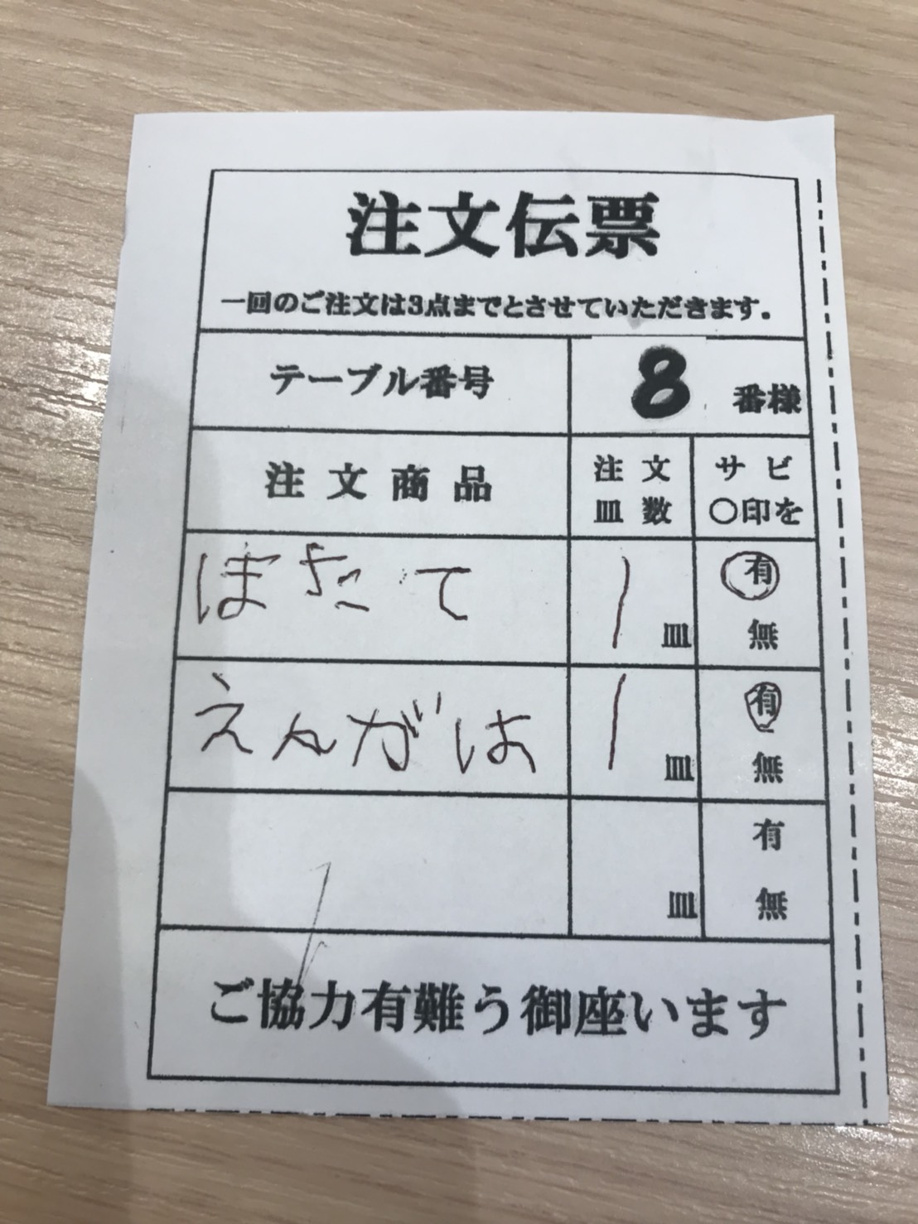 注文伝票
一回のご注文は3点までとさせていただきます。
テーブル番号 8 番様
注文商品 注文皿数 サビ○印を
ほたて 1 皿 有 無
えんがは 1 皿 有 無
皿 有 無
ご協力有難う御座います